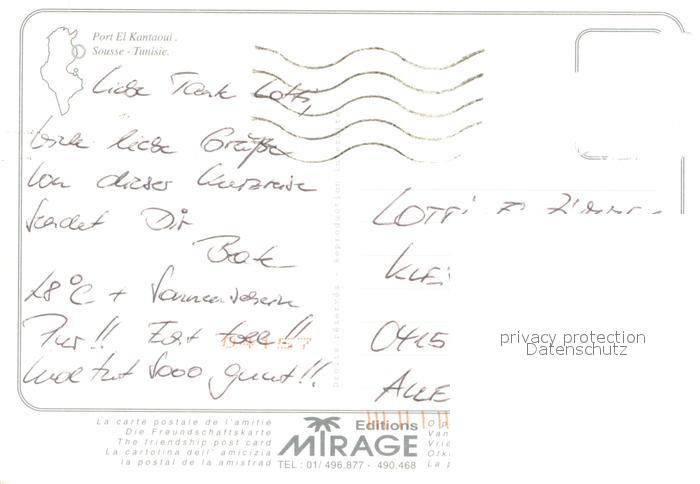 Port El Kantaoui .
Sousse - Tunisie.
Liebe Tante Lotti,
viele liebe Grüße
von dieser Kurzreise
sendet Dir
28°C + Sonnenschein
Pur!! Echt toll!!
und tut sooo guuut!!!
LOTTI
KLEI
0415
ALLE
privacy protection
Datenschutz
La carte postale de l'amitié
Die Freundschaftskarte
The friendship post card
La cartolina dell' amicizia
la postal de la amistrad
Editions
MIRAGE
TEL : 01/ 496.877 - 490.468